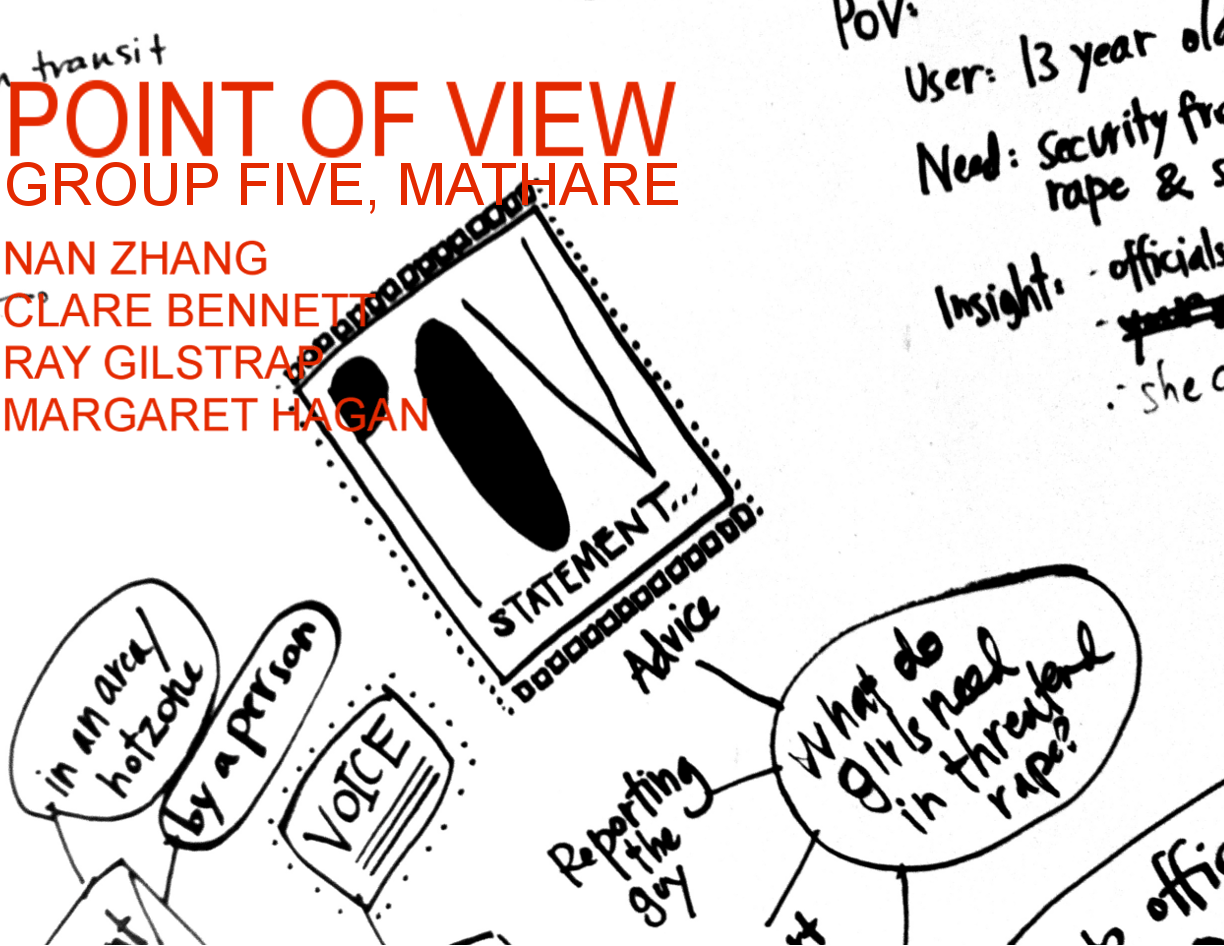 transit
POINT OF VIEW
GROUP FIVE, MATHARE
NAN ZHANG
CLARE BENNETT
RAY GILSTRAP
MARGARET HAGAN
POV:
User: 13 year old
Need: security
rape &
Insight: · officials
· she
POV
STATEMENT...
in an area/
hotzone
by a person
VOICE
Advice
Reporting
the
guy
What do
girls need
in threatend
rape?